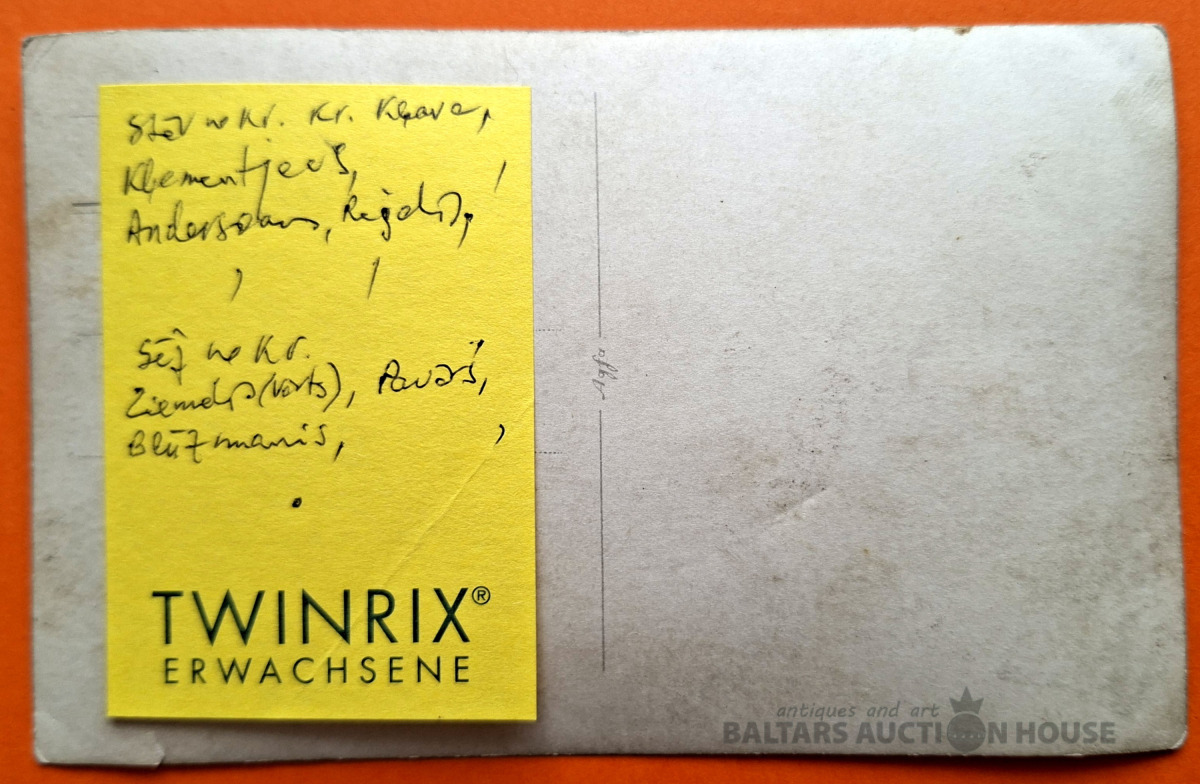 Stāv no Kr. Kr. Kļava,
Kļementjevs,
Andersons,
Sēž no Kr.
Ziemelis (vārts), Pavārs,
Blūzmanis,
TWINRIX®
ERWACHSENE
Agfa
antiques and art
BALTARS AUCTION HOUSE